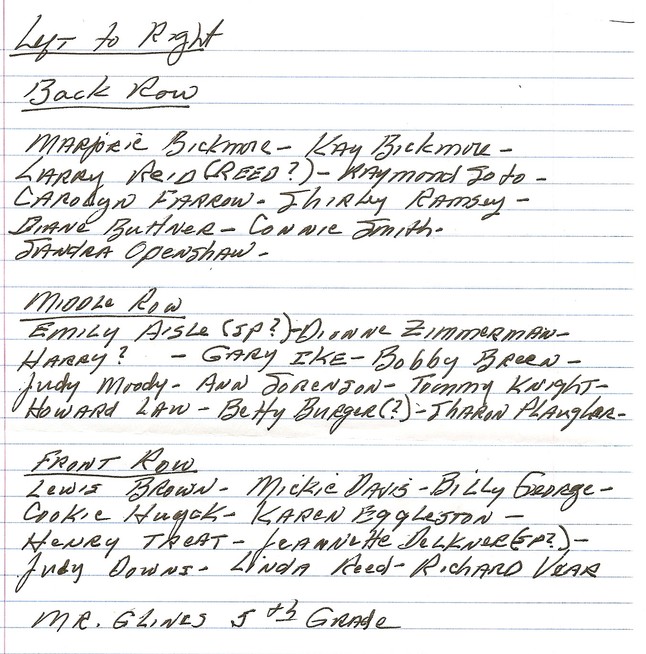 Left to Right
Back Row
Marjorie Bickmore - Kay Bickmore -
Larry Reid (Reed?) - Raymond Soto -
Carolyn Farrow - Shirley Ramsey -
Diane Buttner - Connie Smith -
Sandra Openshaw -
Middle Row
Emily Aisle (SP?) - Dionne Zimmerman -
Harry? - Gary Ike - Bobby Breen -
Judy Moody - Ann Sorenson - Tommy Knight -
Howard Law - Betty Burger (?) - Sharon Plaugher -
Front Row
Lewis Brown - Mickie Davis - Billy George -
Cookie - Karen Eggleston -
Henry Treat - Jeannette Delkner (SP?) -
Judy Downs - Linda Reed - Richard Vear
Mr. Glines 5th Grade